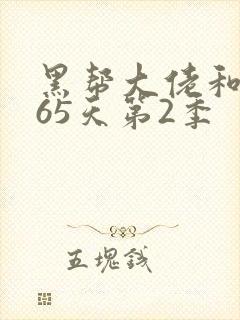 黑帮大佬和
65天第2季
五塊錢